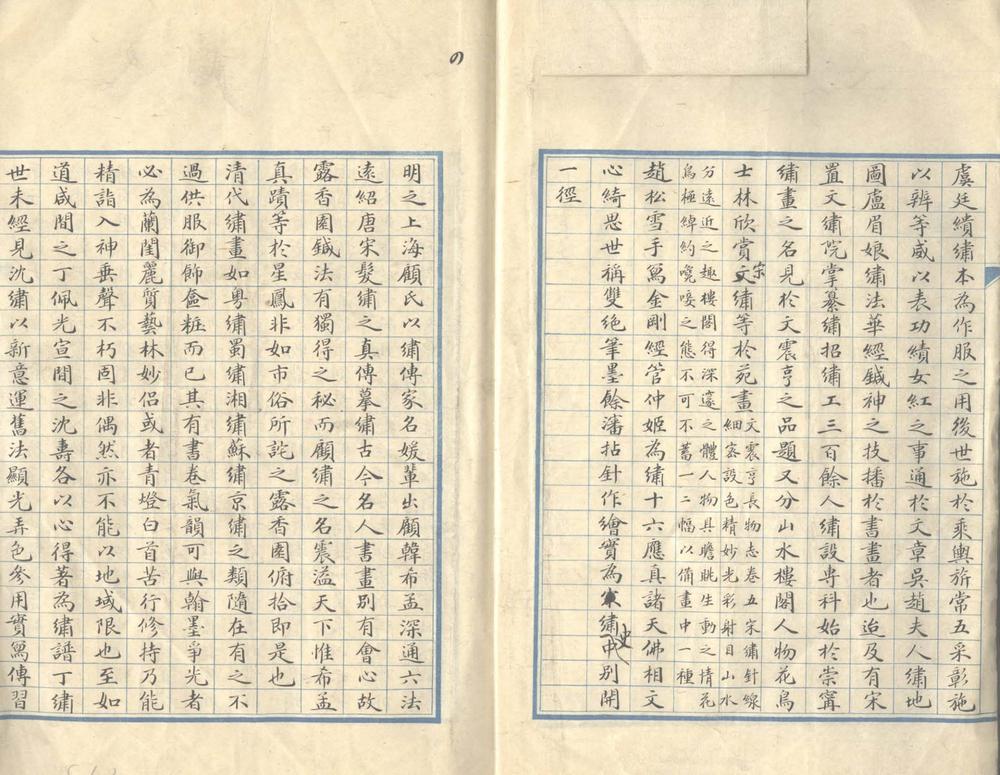 虞廷繢繡本為作服之用後世施於乘輿旂常五采彰施
以辨等威以表功績女紅之事通於文章吳趙夫人繡地
圖盧眉娘繡法華經鍼神之技播於書畫者也迨及有宋
置文繡院掌纂繡招繡工三百餘人繡設專科始於崇寧
繡畫之名見於文震亨之品題又分山水樓閣人物花鳥
士林欣賞宋繡等於苑畫文震亨長物志卷五宋繡針線
細密設色精妙光彩射目山水
分遠近之趣樓閣得深邃之體人物具瞻眺生動之情花
鳥極綽約嚵唼之態不可不蓄一二幅以備畫中一種
趙松雪手寫金剛經管仲姬為繡十六應真諸天佛相文
心綺思世稱雙絕筆墨餘瀋拈針作繪實為繡史中別開
一徑
の
明之上海顧氏以繡傳家名媛輩出顧韓希孟深通六法
遠紹唐宋髮繡之真傳摹繡古今名人書畫別有會心故
露香園鍼法有獨得之秘而顧繡之名震溢天下惟希孟
真蹟等於星鳳非如市俗所詫之露香園俯拾即是也
清代繡畫如粵繡蜀繡湘繡蘇繡京繡之類隨在有之不
過供服御飾奩粧而已其有書卷氣韻可與翰墨爭光者
必為蘭閨麗質藝林妙侶或者青燈白首苦行修持乃能
精詣入神垂聲不朽固非偶然亦不能以地域限也至如
道咸間之丁佩光宣間之沈壽各以心得著為繡譜丁繡
世未經見沈繡以新意運舊法顯光弄色參用實寫傳習